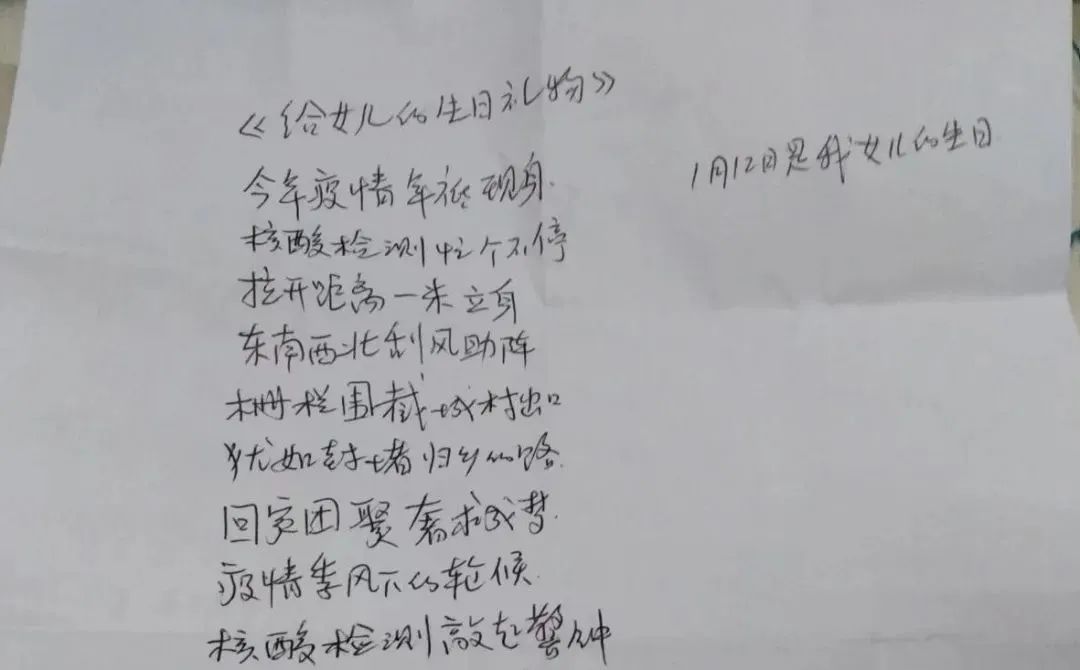 《给女儿的生日礼物》
1月12日是我女儿的生日
今年疫情年底现身
核酸检测忙个不停
拉开距离一米立身
东南西北刮风助阵
栅栏围截城村出口
犹如封堵归乡的路
回家团聚奢求成梦
疫情季风下的轮候
核酸检测敲起警钟